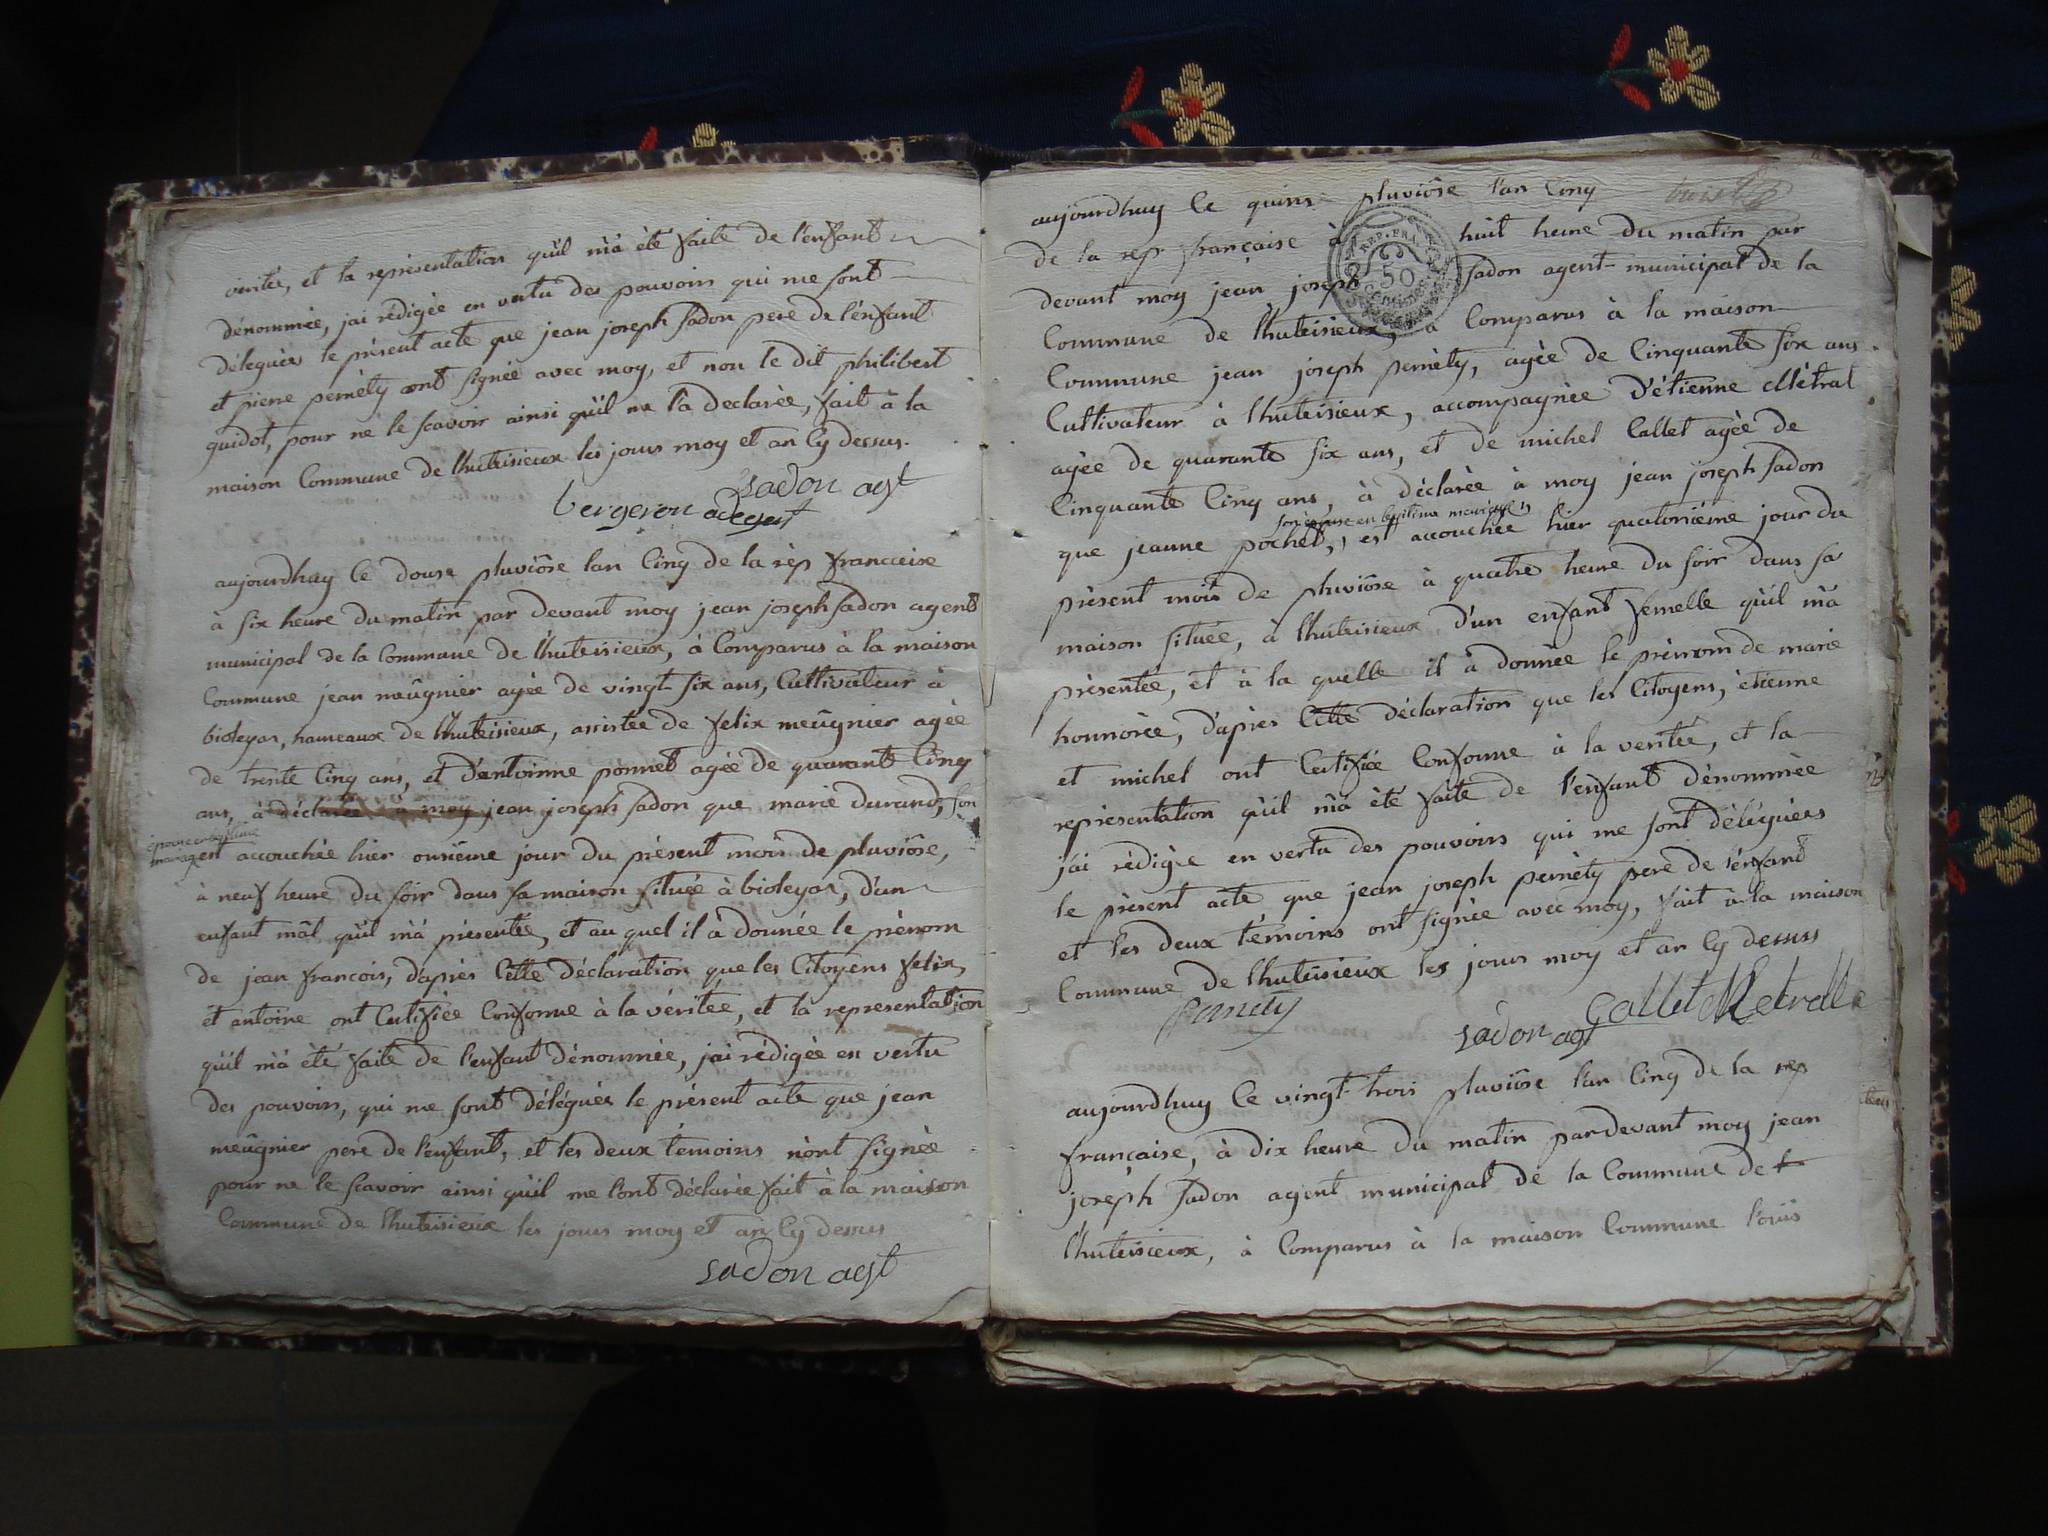 verités, et la représentation qu'il m'a été faite de l'enfant
dénommée, j'ai rédigée en vertu des pouvoirs qui me sont
délegués le présent acte que jean joseph sadon pere de l'énfant
et pierre pernèty ont signée avec moy, et non le dit philibert
guidot, pour ne le scavoir ainsi qu'il me l'a declarée, fait à la
maison Commune de lhuteisieux les jours moy et an Cy dessus.
sadon agt
bergeron adegent
aujourdhuy le douse pluviôse lan Cinq de la rèp francaise
à six heure du matin par devant moy jean joseph sadon agent
municipal de la Commune de lhuteisieux, à Comparus à la maison
Commune jean meûgnier agée de vingt six ans, Cultivateur à
bioleyas, hameaux de lhuteisieux, assistée de felix meûgnier agée
de trente Cinq ans, et d'antoinne ponnet agée de quarante Cinq
ans, à déclarée a moy jean joseph sadon que marie durand, son
épouse en legitime
mariage est accouchée hier onsième jour du présent mois de pluviôse,
à neuf heure du soir dans sa maison située à bioleyas, d'un
enfant mâl qu'il m'a présentée, et au quel il à donnée le prénom
de jean francois, d'après Cette déclaration que les Citoyens felix,
et antoine ont Certifiée Conforme à la véritée, et la representation
qu'il m'a été faite de l'enfant dénommée, j'ai rédigée en vertu
des pouvoirs, qui me sont délégués le présent acte que jean
meûgnier pere de l'enfant, et les deux témoins n'ont signée
pour ne le scavoir ainsi qu'il me l'ont déclarée fait à la maison
Commune de lhuteisieux les jours moy et an Cy dessus
sadon agt
aujourdhuy le quinse pluviôse l'an Cinq
de la rep française à huit heure du matin par
REP. FRA
50
devant moy jean joseph sadon agent municipal de la
Commune de lhuteisieux, à Comparus à la maison
Commune jean joseph pernèty, agée de Cinquante six ans
Cultivateur à lhuteisieux, accompagnée d'étienne Métral
agée de quarante six ans, et de michel Callet agée de
Cinquante Cinq ans, à déclarée à moy jean joseph sadon
son épouse en legitime mariage
que jeanne pochet, est accouchée hier quatorsième jour du
présent mois de pluviôse à quatre heure du soir dans sa
maison située, à lhuteisieux d'un enfant femelle qu'il m'a
présentée, et à la quelle il à donnée le prénom de marie
honnorée, d'après Cette déclaration que les Citoyens, étienne
et michel ont Certifiée Conforme à la veritée, et la
représentation qu'il m'a été faite de l'enfant dénommée
j'ai rédigée en vertu des pouvoirs qui me sont délégués
le présent acte que jean joseph pernèty pere de l'énfant
et les deux témoins ont signée avec moy, fait à la maison
Commune de lhuteisieux les jours moy et an Cy dessus
Pernety
sadon agt Callet Metralle
aujourdhuy le vingt trois pluviôse l'an Cinq de la rep
française, à dix heure du matin pardevant moy jean
joseph sadon agent municipal de la Commune de
lhuteisieux, à Comparus à la maison Commune louis